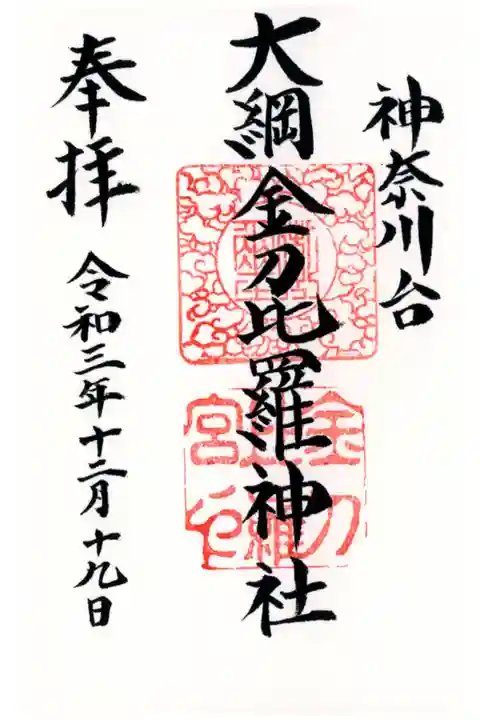 神奈川台
大綱金刀比羅神社
奉拝
令和三年十二月十九日